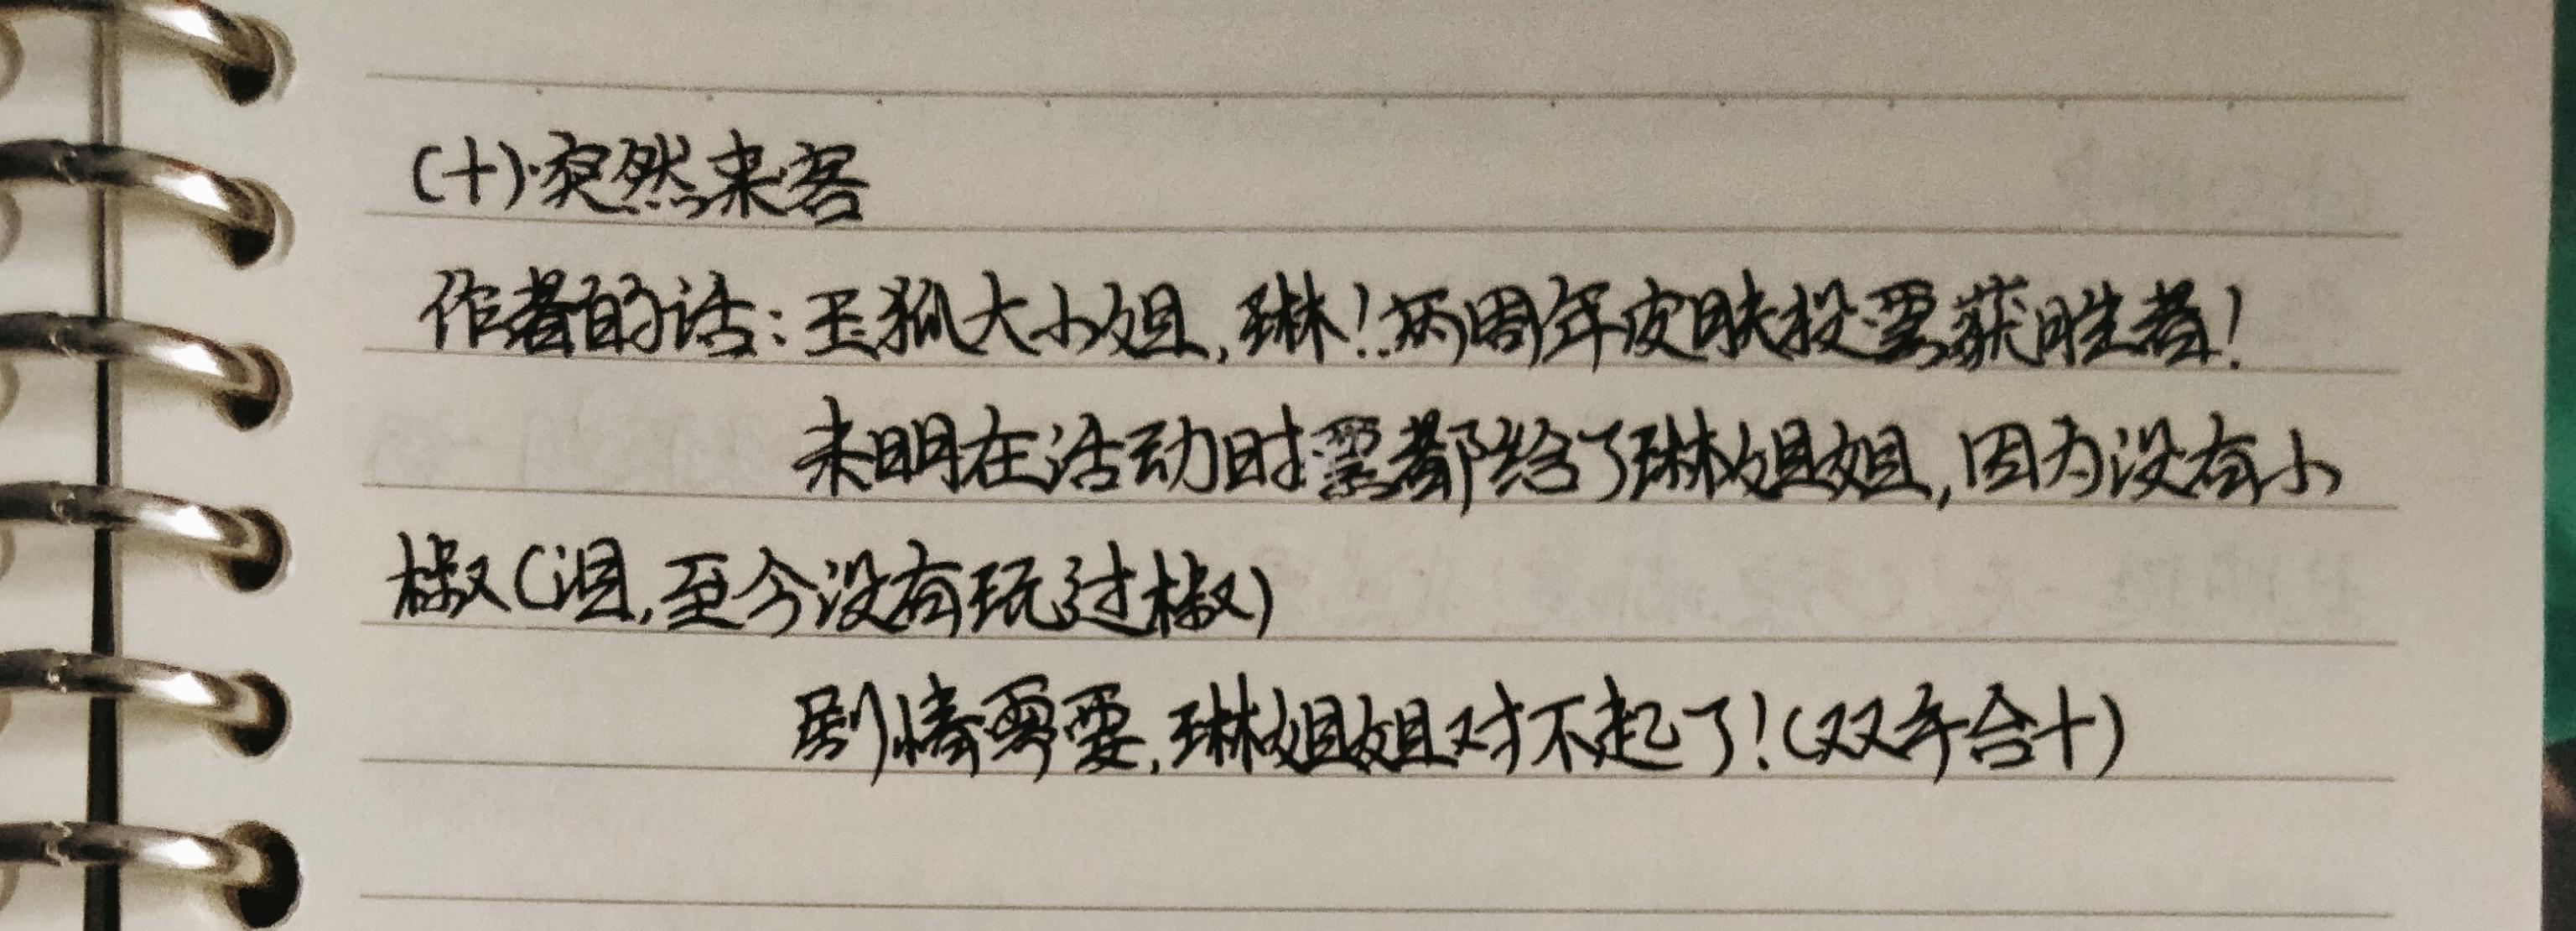 (十)·突然来客
作者的话:玉狐大小姐,琳!两周年皮肤投票获胜者!
未明在活动时票都给了琳姐姐,因为没有小
椒(泪,至今没有玩过椒)
剧情需要,琳姐姐对不起了!(双手合十)